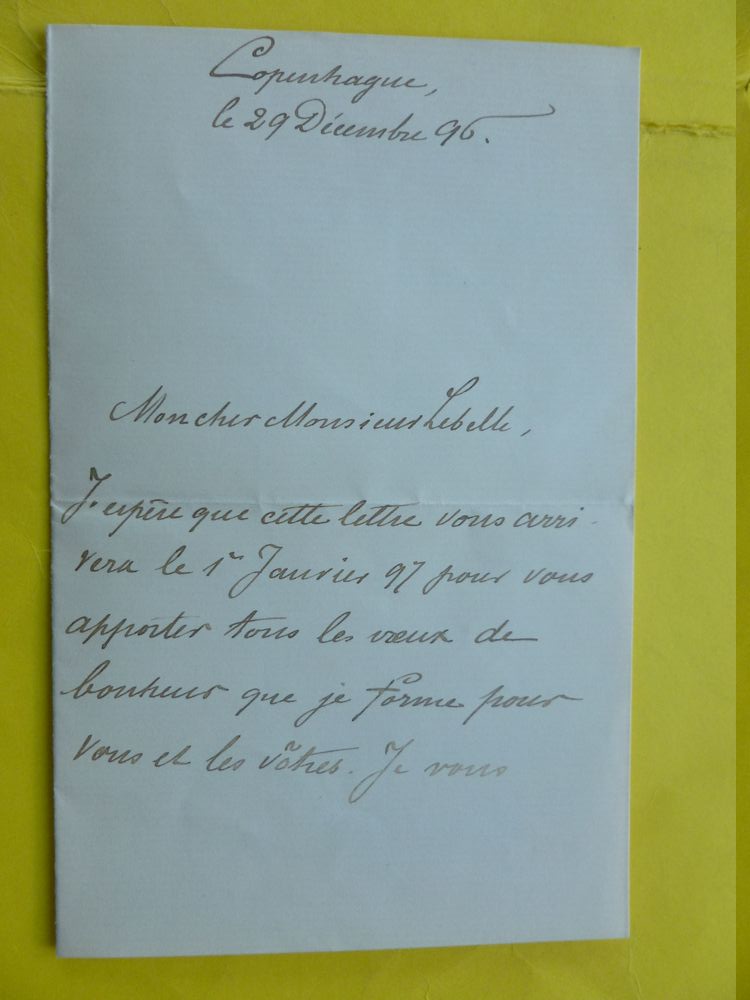 Copenhague,
le 29 Décembre 96.
Mon cher Monsieur Lebelle,
J'espère que cette lettre vous arri-
vera le 1er Janvier 97 pour vous
apporter tous les vœux de
bonheur que je forme pour
vous et les vôtres. Je vous